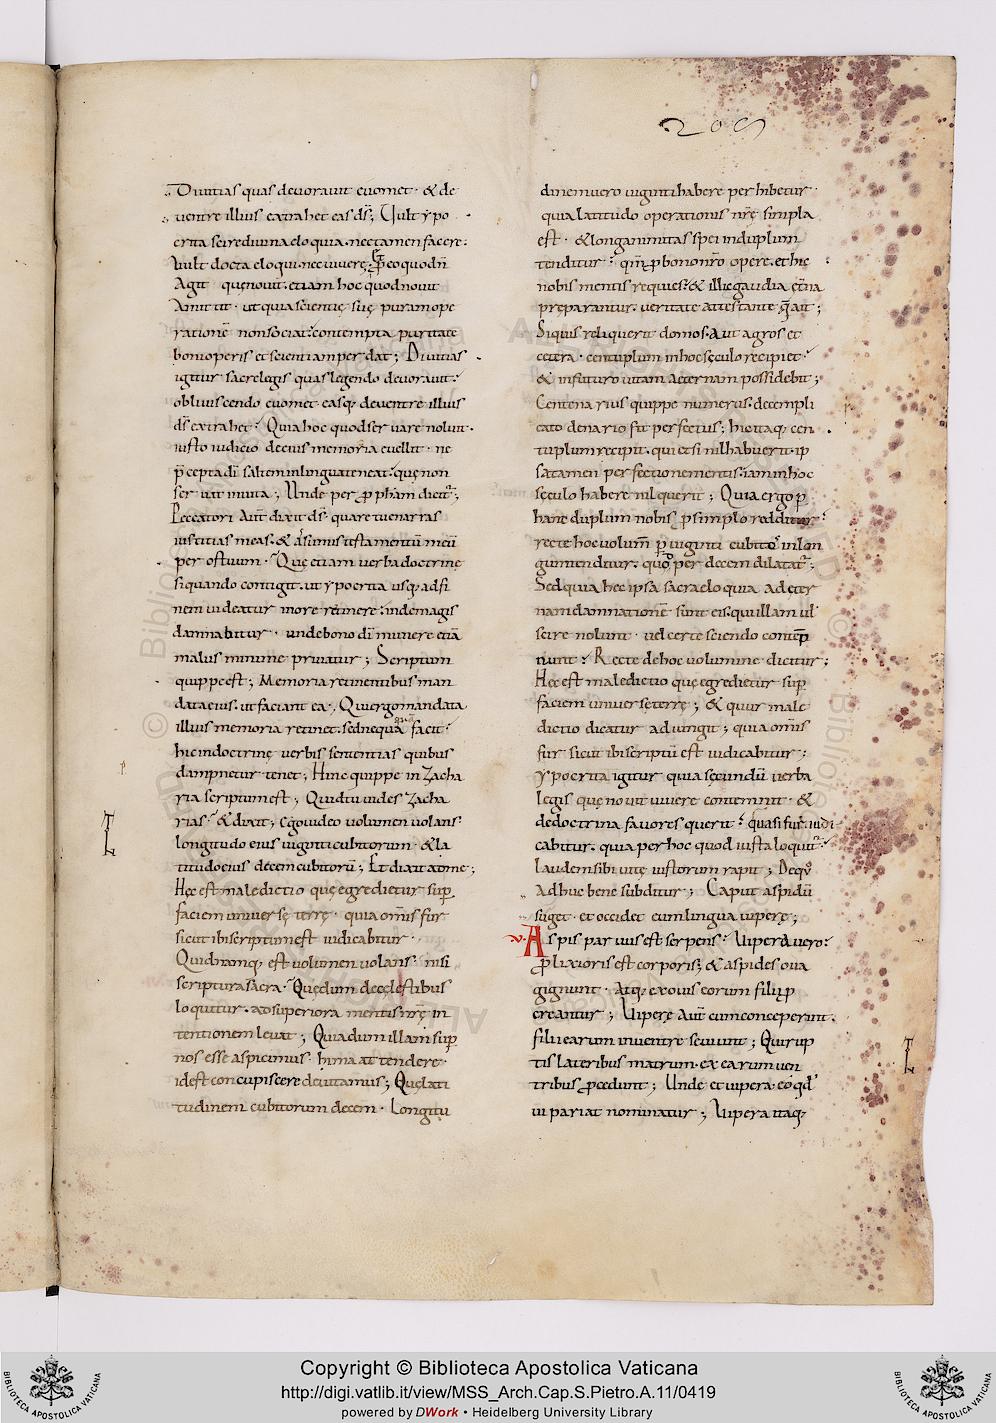 209
Diuitias quas deuorauit euomet · & de
uentre illius extrahet eas ds̄; Uult ypo
crita scire diuina eloquia. nec tamen facere:
Uult docta eloqui. nec uiuere; Et p̄ eo quodn̄
Agit quę nouit. etiam hoc quod nouit
Amittit · ut quia scientię suę puram ope
rationē non sociat: contempta puritate
boni operis et scientiam perdat; Diuitias
igitur sacre legis quas legendo deuorauit:
obliuiscendo euomet. easq; de uentre illius
ds̄ extrahet: Quia hoc quod seruare noluit.
iusto iudicio de eius memoria euellit · ne
p̄cepta dī saltem in lingua teneat. quę non
seruat in uita; Unde per p̄pham dicit᷑;
Peccatori Aut̄ dixit ds̄. quare tu enarras
iustitias meas. & assumis testamentū meū
per os tuum · Que etiam uerba doctrinę
si quando contigit. ut ypocrita usq; ad fi
nem uideatur in ore retinere: inde magis
damnabitur · unde bono dī munere etiā
malus minime priuatur; Scriptum
quippe est; Memoria retinentibus man
data eius. ut faciant ea; Qui ergo mandata
illius memoria retinet. sed nequaquā facit:
hic in doctrinę uerbis sententias quibus
dampnetur tenet; Hinc quippe in Zacha
ria scriptum est; Quid tu uides Zacha
rias: & dixit; ego uideo uolumen uolans·
longitudo eius uiginti cubitorum · & la
titudo eius decem cubitorū; Et dixit ad me;
Hęc est maledictio quę egredietur sup̄
faciem uniuersę terrę · quia omīs fur
sicut ibi scriptum est iudicabitur ·
Quidnamq; est uolumen uolans· nisi
scriptura sacra · Quę dum de celestibus
loquitur. ad superiora mentis nr̄ę in
tentionem leuat; Quia dum illam sup̄
nos esse aspicimus· hima attendere·
id est concupiscere deuitamus; Que lati
tudinem cubitorum decem · Longitu
dinem uero uiginti habere perhibetur·
quia latitudo operationis nr̄ę simpla
est · & longanimitas spei in duplum
tenditur: qm̄ p bono nr̄o opere. et hic
nobis mentis requies. & illic gaudia ęt̄na
preparantur. ueritate attestante q̄ ait;
Siquis reliquerit domos. Aut agros et
cetera · centuplum in hoc sęculo recipiet·
& in futuro uitam aeternam possidebit;
Centenarius quippe numerus. decempli
cato denario fit perfectus; hic itaq; cen
tuplum recipit. qui etsi nil habuerit. ip
sa tamen perfectione mentis. iam in hoc
sęculo habere nil querit; Quia ergo p
hanc duplum nobis p simplo redditur:
recte hoc uolum̄ p̄ uiginti cubitos in lon
gum tenditur. quod per decem dilatat᷑;
Sed quia hec ipsa sacra eloquia ad eter
nam damnationē sunt eis. qui illam uł
scire nolunt · uel certe sciendo contēp
nunt: Recte de hoc uolumine dicitur;
Hęc est maledictio quę egredietur sup̄
faciem uniuersę terrę; & cur male
dictio dicatur adiungit; quia omīs
fur sicut ibi scriptū est iudicabitur:
Ypocrita igitur quia sęcundū uerba
legis quę nouit uiuere contemnit · &
de doctrina fauores querit: quasi fur. iudi
cabitur. quia per hoc quod iusta loquit᷑:
laudem sibi uitę iustorum rapit; De q̊
Adhuc bene subditur; Caput aspidū
suget · et occidet eum lingua uiperę;
Aspis paruus est serpens: Uipera uero:
plixioris est corporis; & aspides oua
gignunt · Atq; ex ouis eorum filii p
creantur; Uiperę Aut̄ cum conceperint.
filii earum in uentre sęuiunt; Qui rup
tis lateribus matrum. ex earum uen
tribus pcedunt; Unde et uipera. eo qd̄
ui pariat nominatur; Uipera itaq;
Copyright © Biblioteca Apostolica Vaticana
http://digi.vatlib.it/view/MSS_Arch.Cap.S.Pietro.A.11/0419
powered by DWork • Heidelberg University Library
BIBLIOTECA APOSTOLICA VATICANA
BIBLIOTECA APOSTOLICA VATICANA